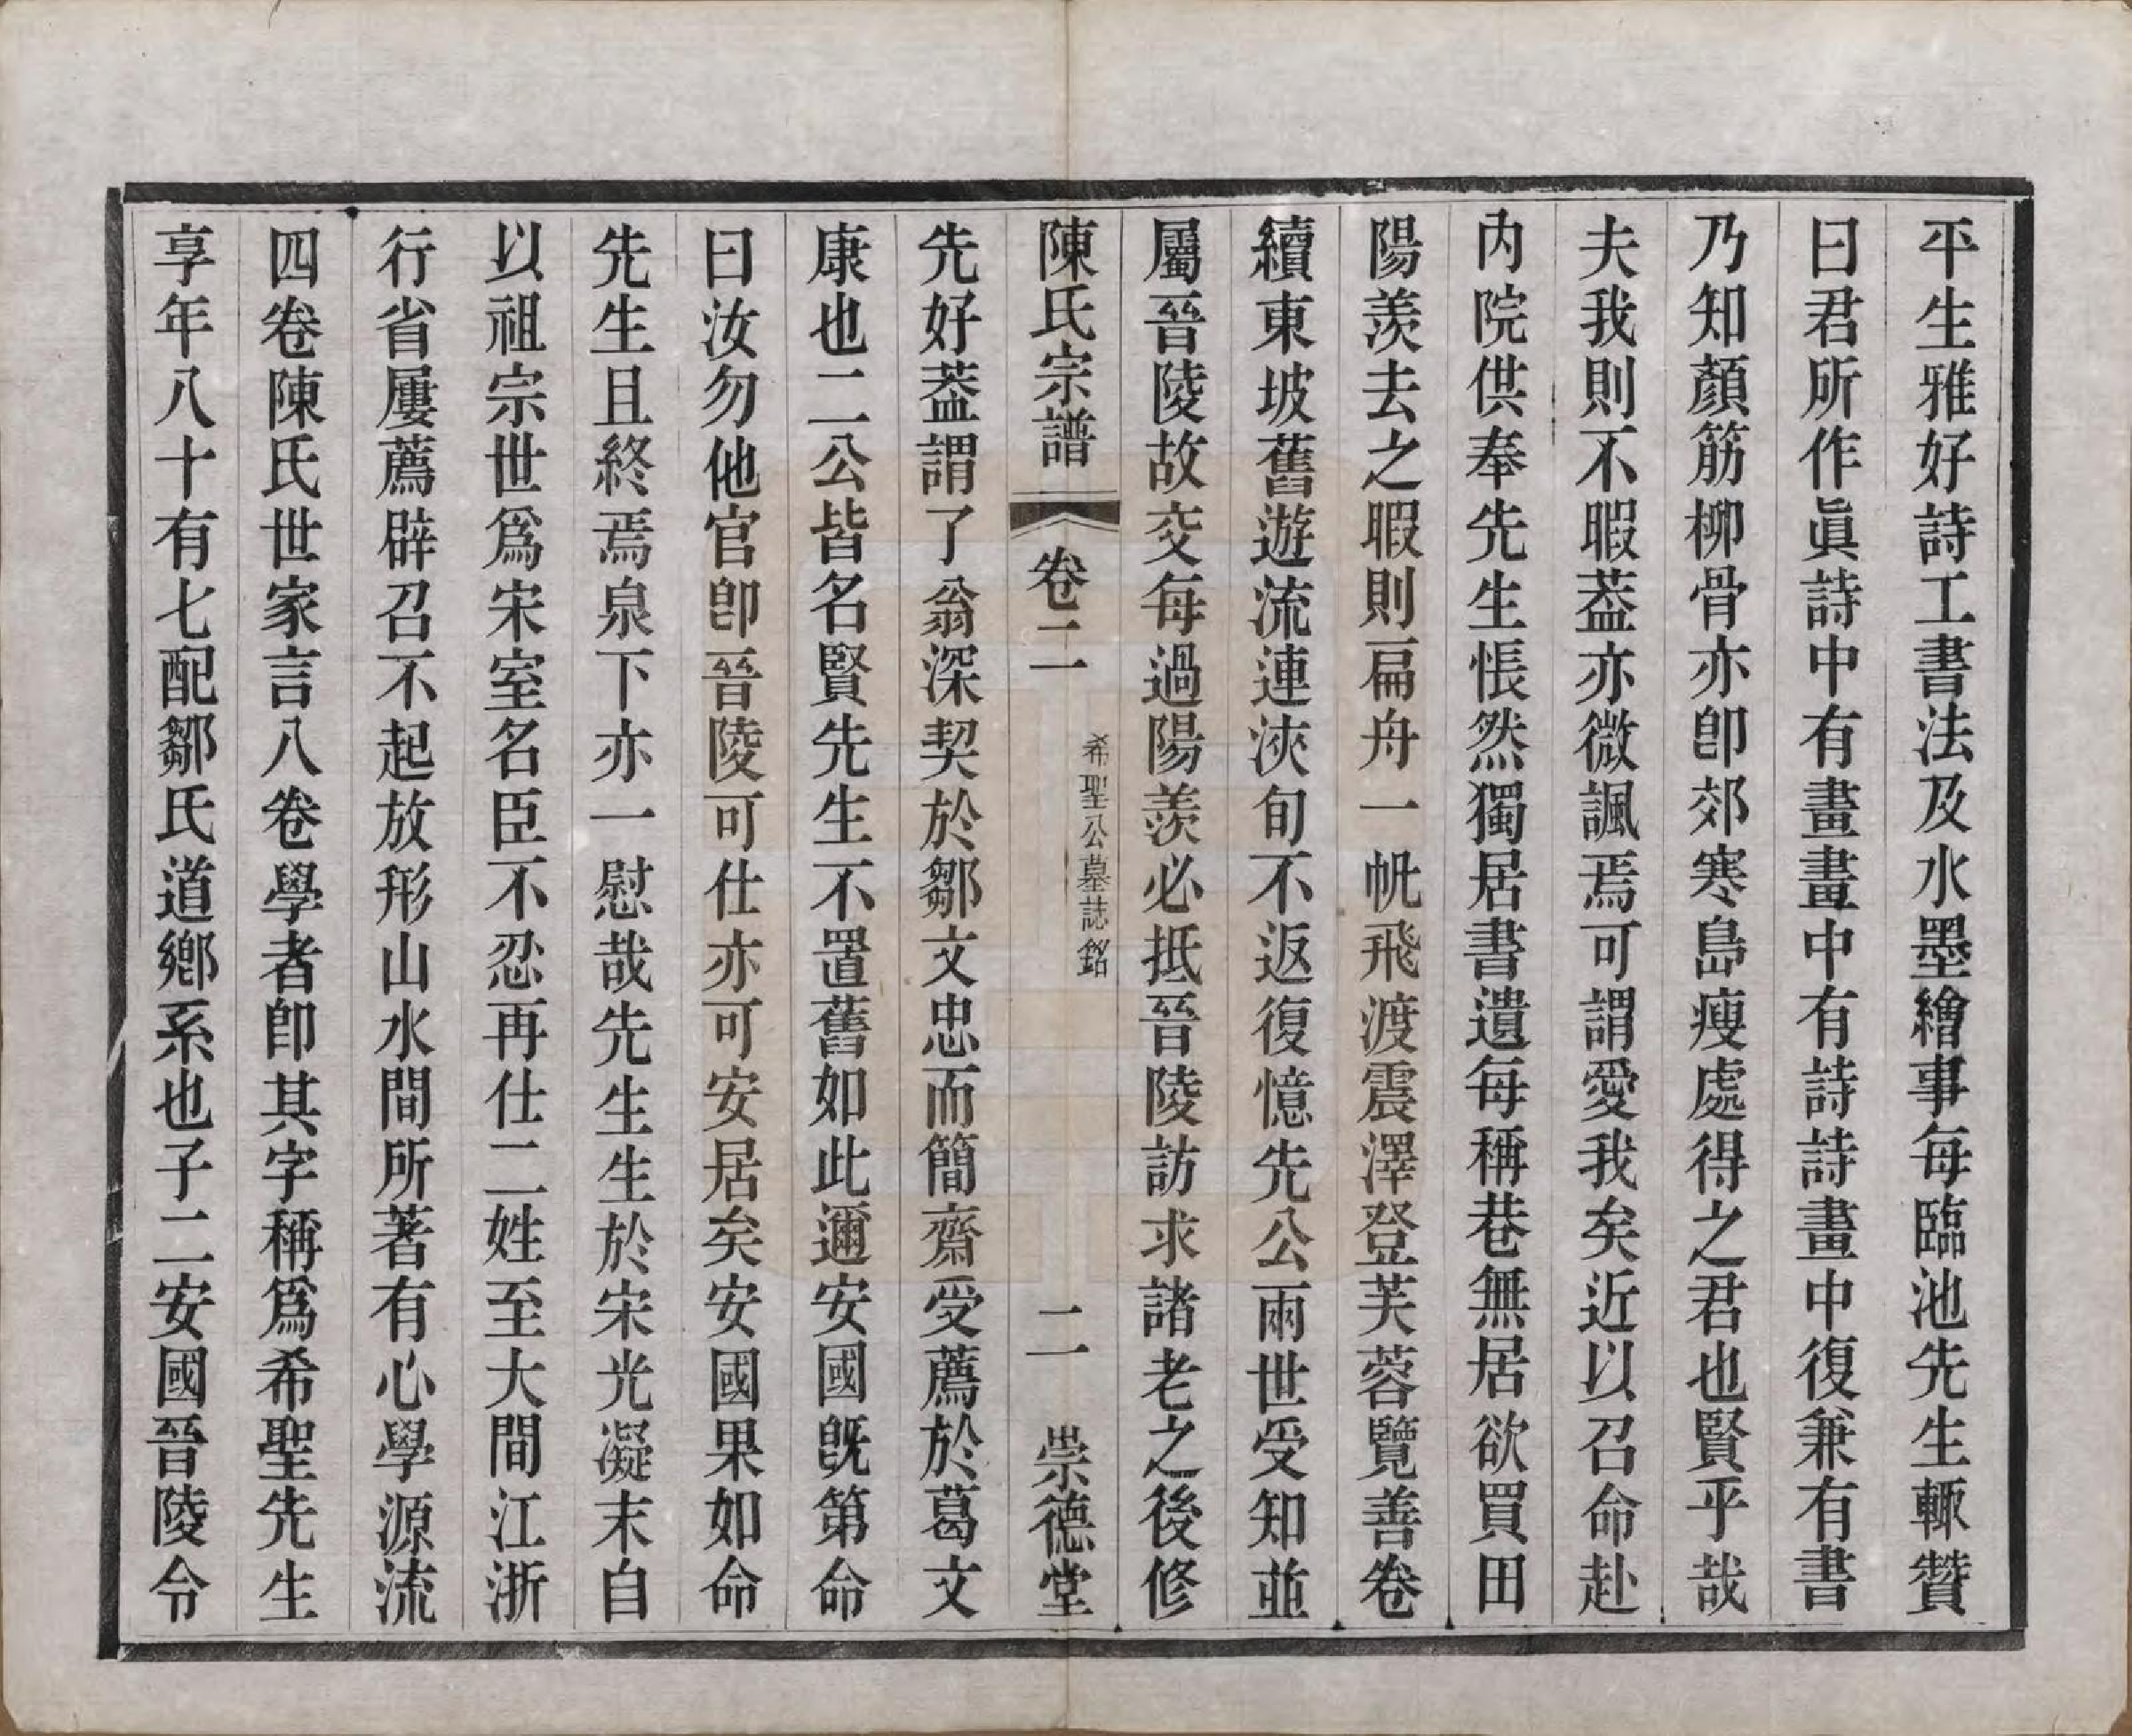 平生雅好詩工書法及水墨繪事每臨池先生輒贊
曰君所作眞詩中有畫畫中有詩詩畫中復兼有書
乃知顏筋柳骨亦卽郊寒島瘦處得之君也賢乎哉
夫我則不暇葢亦微諷焉可謂愛我矣近以召命赴
內院供奉先生悵然獨居書遺每稱巷無居欲買田
陽羨去之暇則扁舟一帆飛渡震澤登芙蓉覽善卷
續東坡舊遊流連浹旬不返復憶先公兩世受知並
屬晉陵故交每過陽羨必抵晉陵訪求諸老之後修
陳氏宗譜 卷二 希聖公墓誌銘 二 崇德堂
先好葢謂了翁深契於鄒文忠而簡齋受薦於葛文
康也二公皆名賢先生不置舊如此邇安國旣第命
曰汝勿他官卽晉陵可仕亦可安居矣安國果如命
先生且終焉泉下亦一慰哉先生生於宋光凝末自
以祖宗世爲宋室名臣不忍再仕二姓至大間江浙
行省屢薦辟召不起放形山水間所著有心學源流
四卷陳氏世家言八卷學者卽其字稱爲希聖先生
享年八十有七配鄒氏道鄉系也子二安國晉陵令